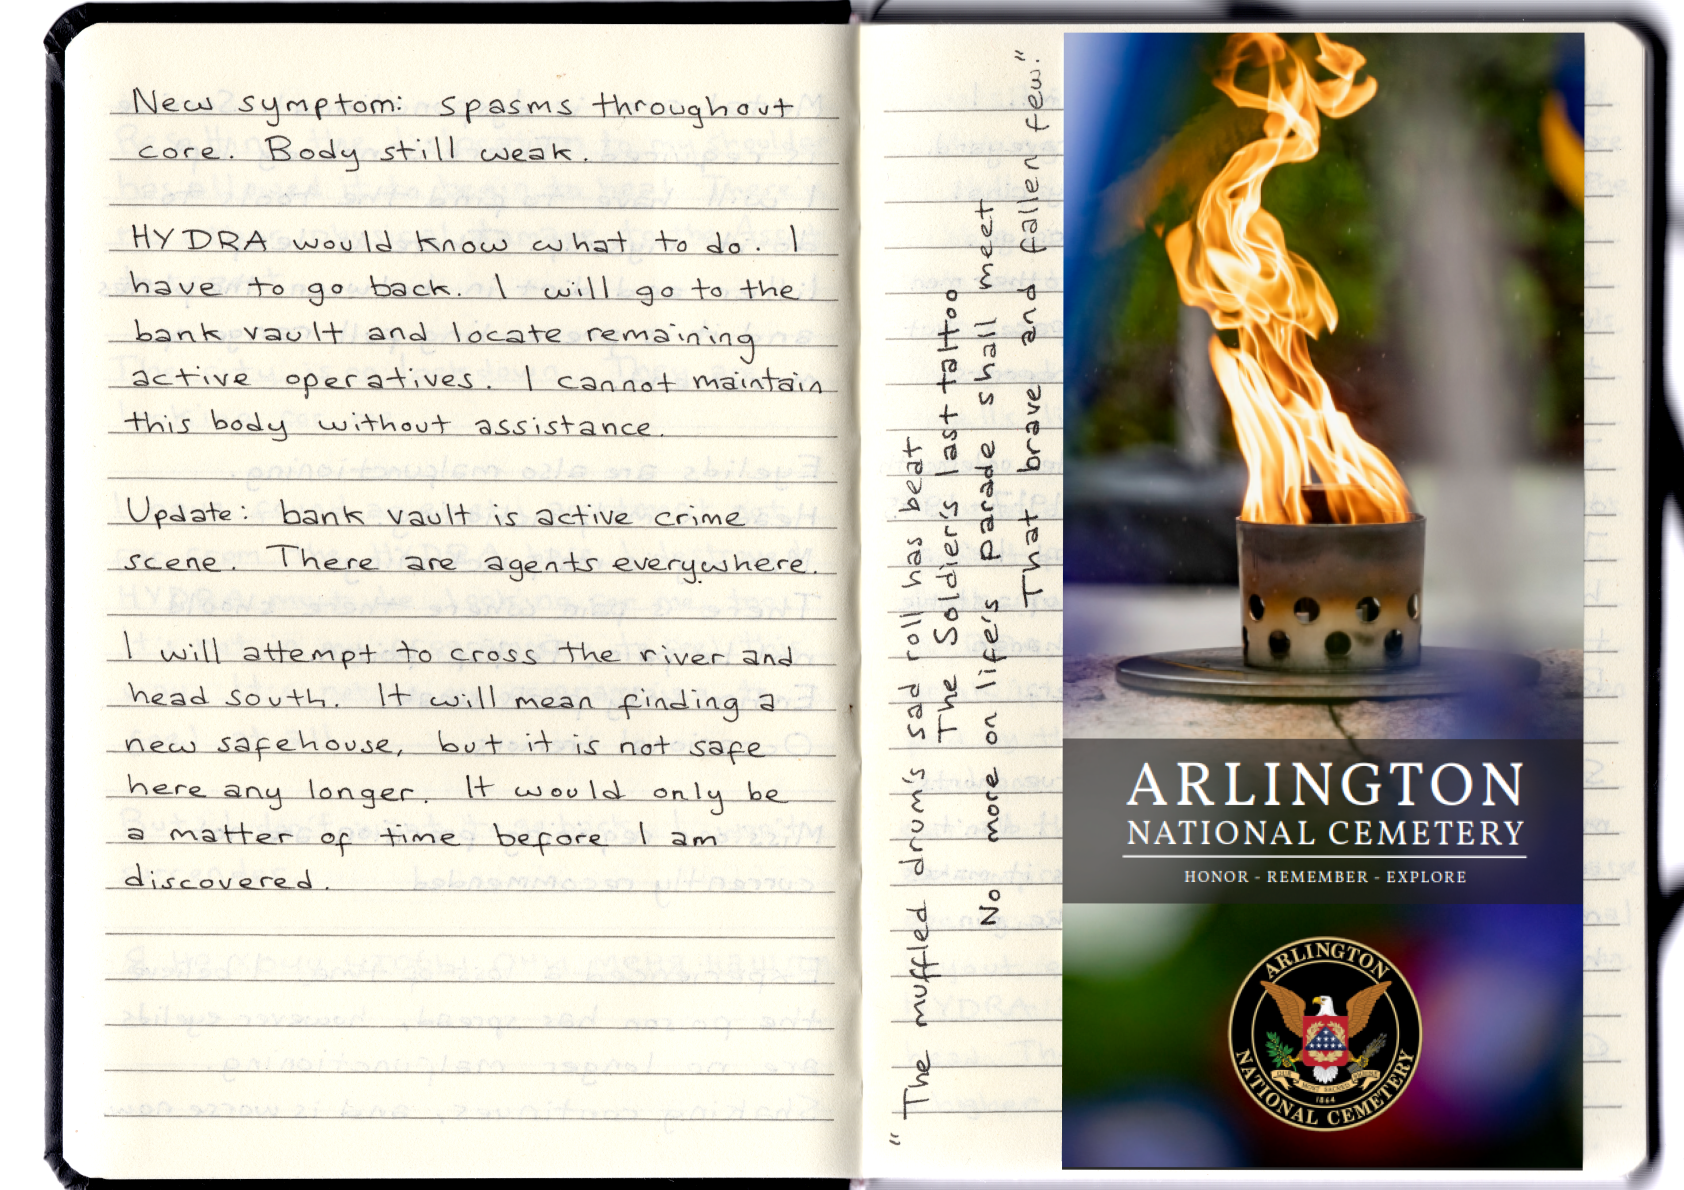 New symptom: spasms throughout
core. Body still weak.
HYDRA would know what to do. I
have to go back. I will go to the
bank vault and locate remaining
active operatives. I cannot maintain
this body without assistance.
Update: bank vault is active crime
scene. There are agents everywhere.
I will attempt to cross the river and
head south. It will mean finding a
new safehouse, but it is not safe
here any longer. It would only be
a matter of time before I am
discovered.
"The muffled drum's sad roll has beat
The Soldier's last tattoo
No more on life's parade shall meet
That brave and fallen few."
ARLINGTON
NATIONAL CEMETERY
HONOR - REMEMBER - EXPLORE
ARLINGTON
OUR MOST SACRED SHRINE
1864
NATIONAL CEMETERY